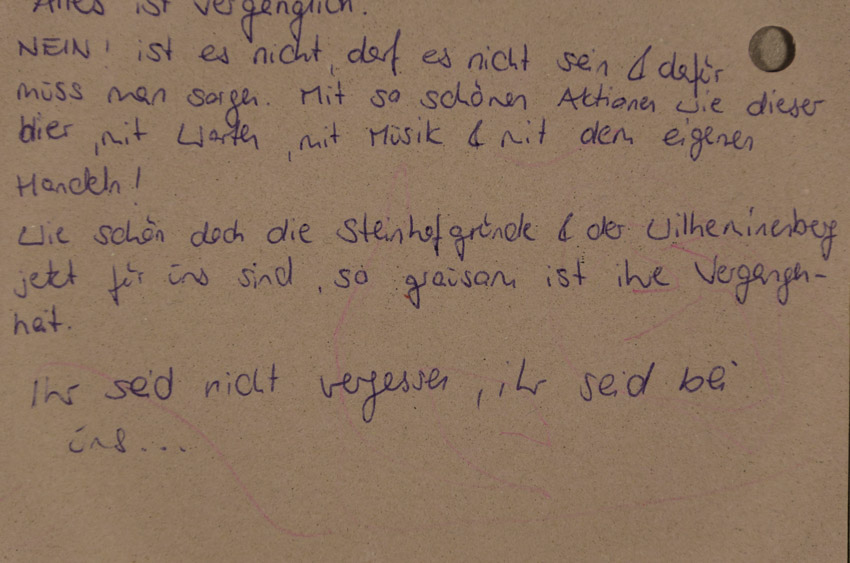 Alles ist vergänglich.
NEIN! ist es nicht, darf es nicht sein & dafür
muss man sorgen. Mit so schönen Aktionen wie dieser
hier, mit Worten, mit Musik & mit dem eigenen
Handeln!
Wie schön doch die Steinhofgründe & der Wilheminenberg
jetzt für uns sind, so grausam ist ihre Vergangen-
heit.
Ihr seid nicht vergessen, ihr seid bei
uns...